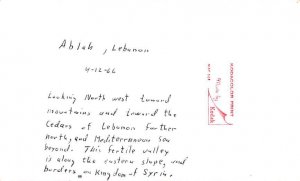 Ablah, Lebanon
4-12-66
Looking North west toward
mountains and toward the
Cedars of Lebanon further
north, and Mediterranean Sea
beyond. This fertile valley
is along the eastern slope, and
borders on Kingdom of Syria.
KODACOLOR PRINT
Made by
Kodak